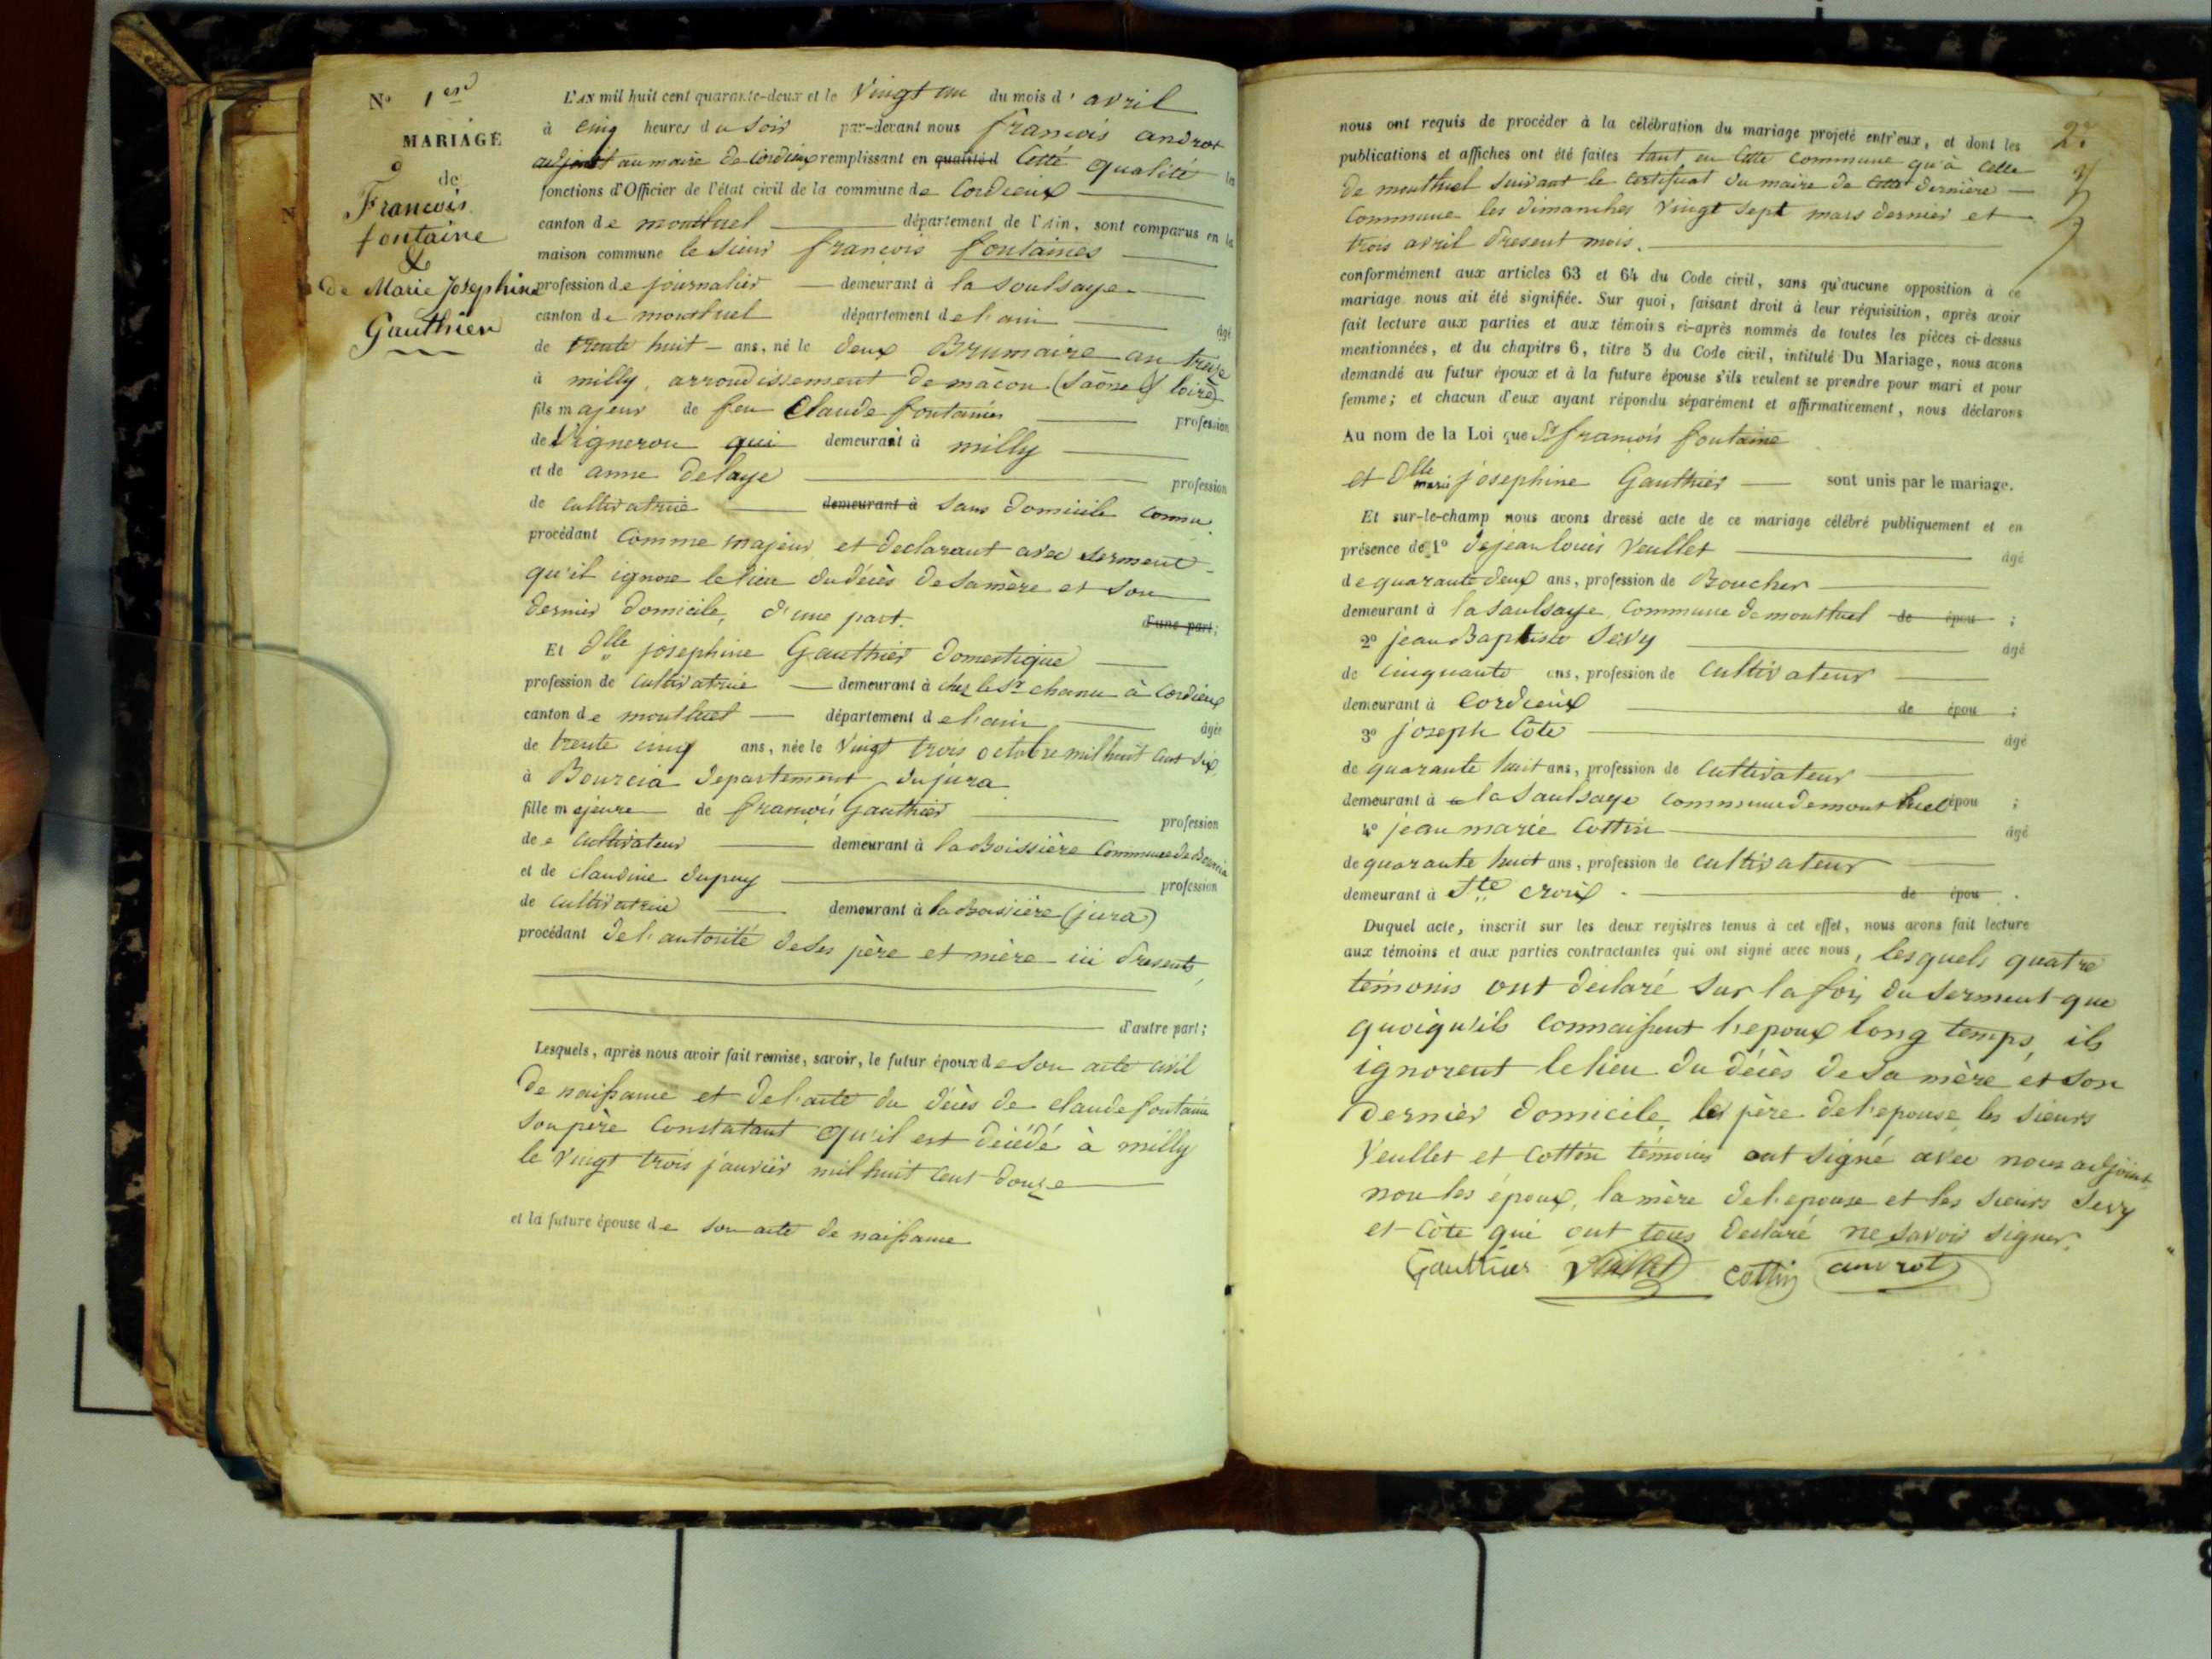 N° 1er
MARIAGE
de
François
fontaine
&
de Marie Josephine
Gauthier
L'AN mil huit cent quarante-deux et le Vingt un du mois d'avril
à cinq heures du soir par-devant nous françois androt
adjoint au maire de Cordieux remplissant en qualité d Cette qualité les
fonctions d'Officier de l'état civil de la commune de Cordieux
canton de montluel département de l'Ain, sont comparus en la
maison commune le sieur françois fontaines
profession de journalier demeurant à la soulsaye
canton de montluel département de l'ain âgé
de trente huit ans, né le deux Brumaire an treize
à milly, arrondissement de mâcon (Saône & loire)
fils majeur de feu Claude fontaines profession
de Vigneron qui demeurait à milly
et de anne delaye profession
de cultivatrice demeurant à sans domicile connu
procédant Comme majeur et declarant avec serment
qu'il ignore le lieu du décès de sa mère et son
dernier domicile, d'une part. d'une part;
Et Dlle josephine Gauthier domestique
profession de cultivatrice demeurant à chez le Sr chanu à Cordieux
canton de montluel département de l'ain âgée
de trente cinq ans, née le Vingt trois octobre mil huit cent six
à Bourcia departement du jura
fille majeure de françois Gauthier profession
de cultivateur demeurant à la Boissière Commune de Bourcia
et de claudine dupuy profession
de cultivatrice demeurant à la Boissière (jura)
procédant de l'autorité de ses père et mère ici présents,
d'autre part;
Lesquels, après nous avoir fait remise, savoir, le futur époux de son acte civil
de naissance et de l'acte du décès de claude fontaine
son père Constatant qu'il est décédé à milly
le vingt trois janvier mil huit cent douze
et la future épouse de son acte de naissance
2
nous ont requis de procéder à la célébration du mariage projeté entr'eux, et dont les
publications et affiches ont été faites tant en cette commune qu'à celle
de montluel suivant le certificat du maire de cette dernière
Commune les dimanches Vingt sept mars dernier et
trois avril présent mois.
conformément aux articles 63 et 64 du Code civil, sans qu'aucune opposition à ce
mariage nous ait été signifiée. Sur quoi, faisant droit à leur réquisition, après avoir
fait lecture aux parties et aux témoins ci-après nommés de toutes les pièces ci-dessus
mentionnées, et du chapitre 6, titre 5 du Code civil, intitulé Du Mariage, nous avons
demandé au futur époux et à la future épouse s'ils veulent se prendre pour mari et pour
femme; et chacun d'eux ayant répondu séparément et affirmativement, nous déclarons
Au nom de la Loi que Sr françois fontaine
et Dlle marie josephine Gauthier sont unis par le mariage.
Et sur-le-champ nous avons dressé acte de ce mariage célébré publiquement et en
présence de 1° de jean louis Veullet âgé
de quarante deux ans, profession de Boucher
demeurant à la saulsaye, Commune de montluel de épou ;
2° jean Baptiste Sevy âgé
de cinquante ans, profession de Cultivateur
demeurant à Cordieux de épou ;
3° joseph Côte âgé
de quarante huit ans, profession de cultivateur
demeurant à la Saulsaye commune de montluel épou ;
4° jean marie Cottin âgé
de quarante huit ans, profession de cultivateur
demeurant à Ste croix de épou .
Duquel acte, inscrit sur les deux registres tenus à cet effet, nous avons fait lecture
aux témoins et aux parties contractantes qui ont signé avec nous, lesquels quatre
témoins ont déclaré sur la foi du serment que
quoiqu'ils connaissent l'epoux long temps, ils
ignorent le lieu du décès de sa mère et son
dernier domicile, les père de l'epouse, les sieurs
Veullet et Cottin témoins ont signé avec nous adjoint
non les époux, la mère de l'epouse et les sieurs Sevy
et Côte qui ont tous declaré ne savoir signer.
Gauthier Veullet Cottin androt